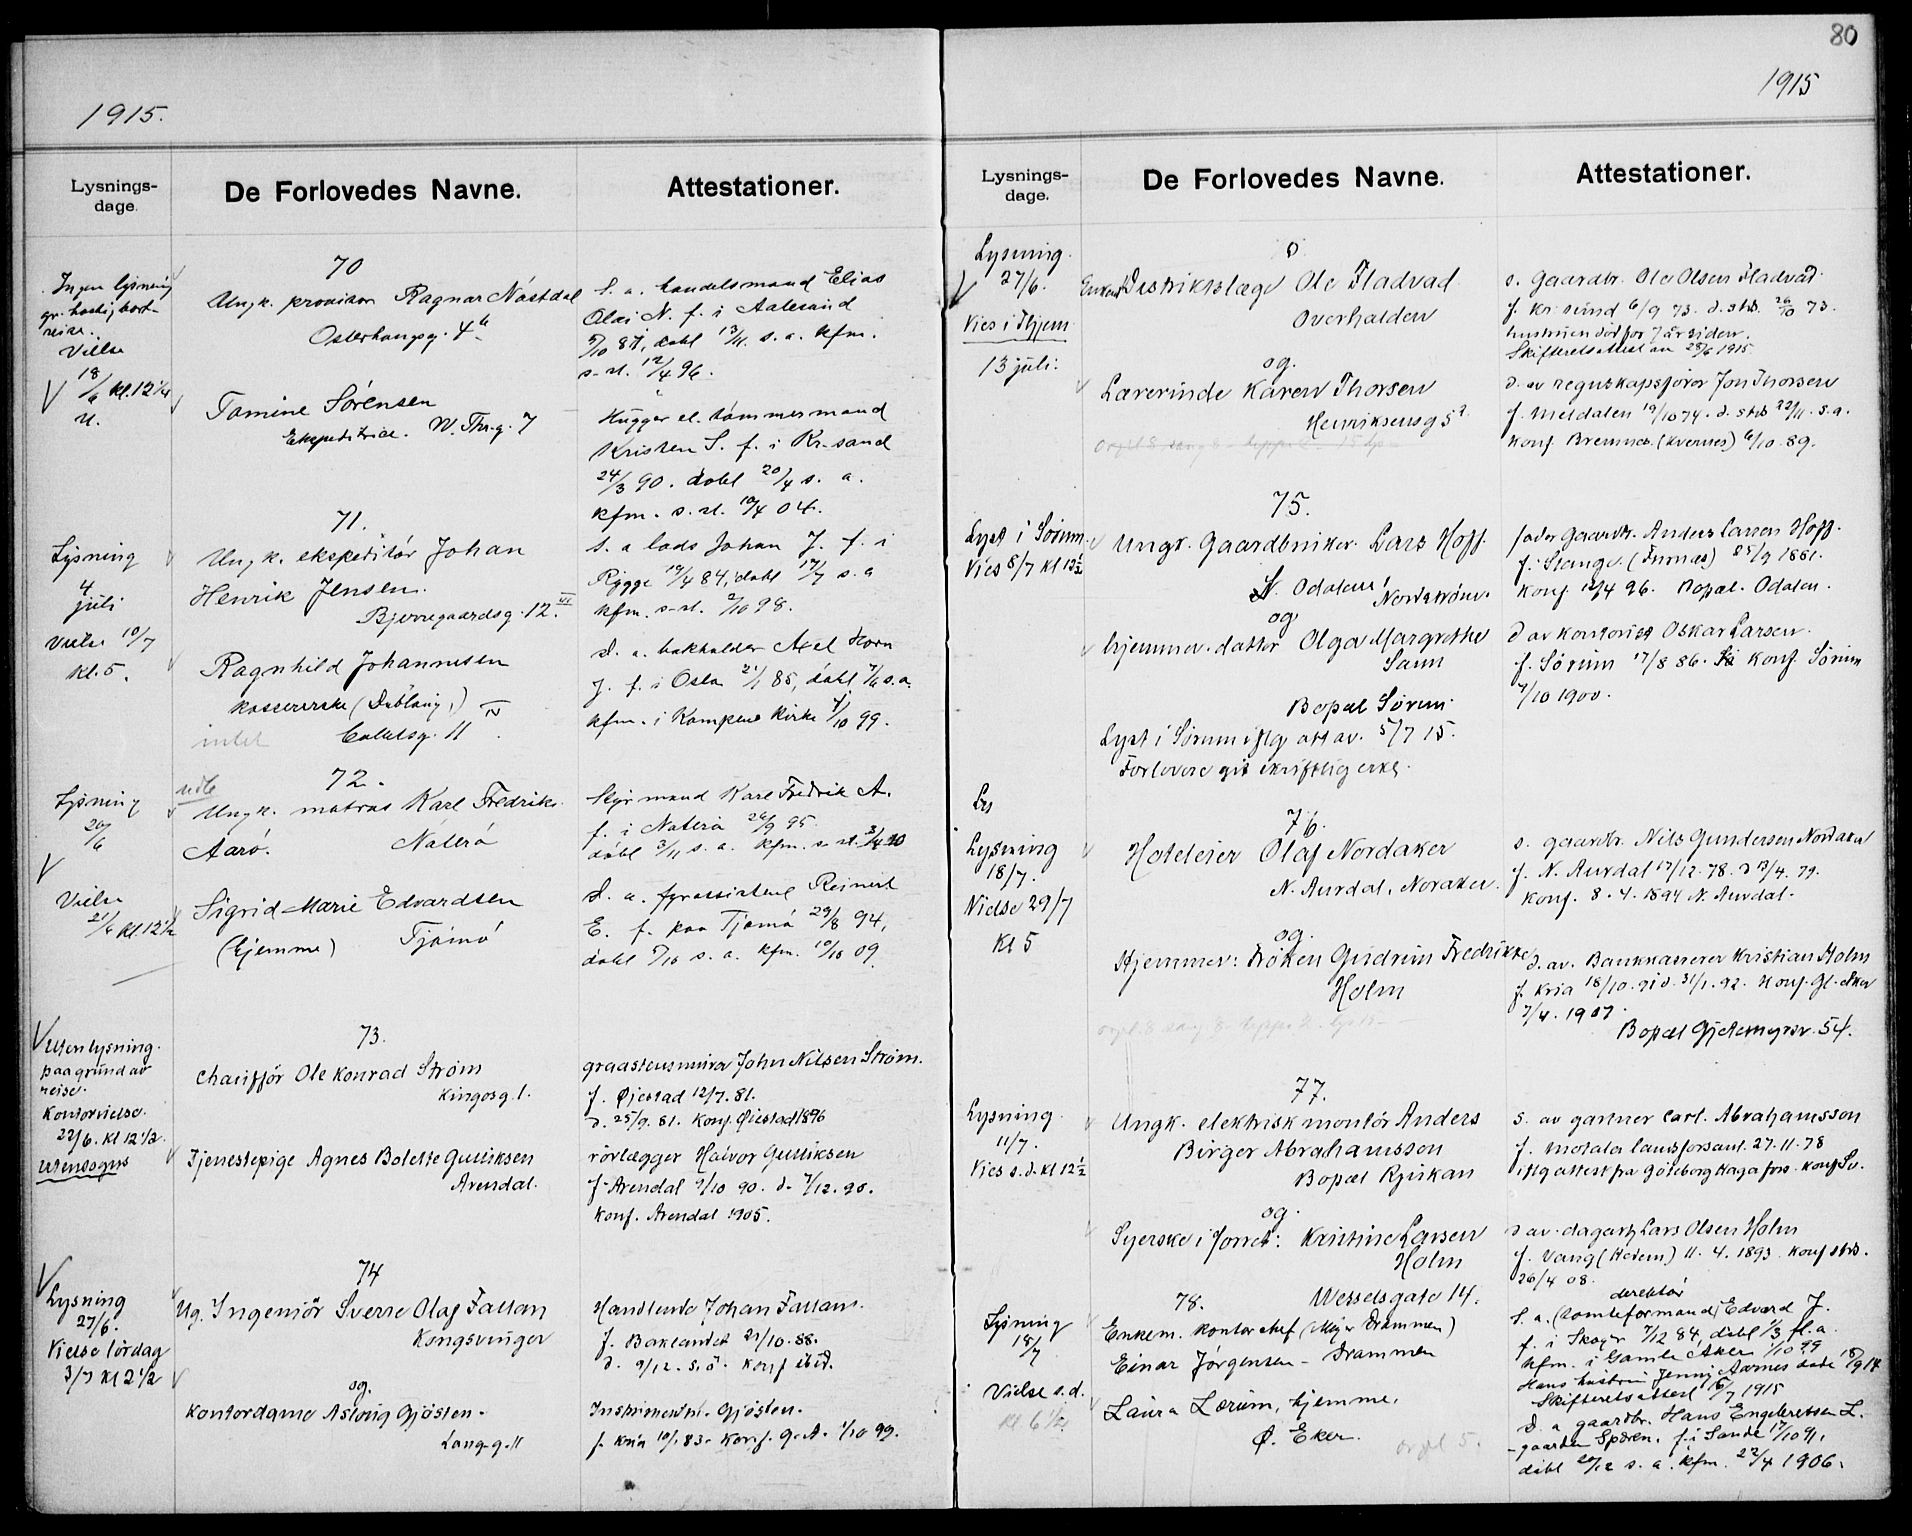 1915.
Lysnings-
dage.
De Forlovedes Navne.
Attestationer.
Ingen lysning
gr. hastig bort-
reise.
Vielse
18/6 kl. 12 1/4
u.
70
Ungk. provisor Ragnar Nástdal
Osterhausg. 4 b
S. a. handelsmand Elias
Olai N. f. i Aalesund
5/10 81, døbt 13/11 s. a. kfm.
s. st. 12/4 96.
Tomine Sørensen
Ekspeditrice. W. Thr. g. 7
Hugger el. tømmermand
Kristen S. f. i Kr. sand
24/3 90. døbt 20/4 s. a.
kfm. s. st. 10/4 04.
71.
Lysning
4
juli
Vielse 10/7
kl. 5.
Ungk. ekspeditør Johan
Henrik Jensen.
Bjerregaardsg. 12. III
S. a lods Johan J. f. i
Rygge 19/4 84, døbt 17/7 s. a
kfm. s. st. 2/10 98.
Ragnhild Johannesen
kassererske (Dübling,)
intet
Colletsg. 11 IV
D. a. bokholder Axel Horn
J. f. i Oslo 21/1 85, døbt 7/6 s. a.
kfm. i Kampens kirke 1/10 99.
72.
Lysning
20/6
Vielse
21/6 kl. 12 1/2
Ungk. matros Karl Fredrik
Aarø. Nøterø
Styrmand Karl Fredrik A.
f. i Nøterø 26/9 95
døbt 3/11 s. a. kfm. s. st. 3/4 10
Sigrid Marie Edvardsen
(Hjemme) Tjømø
D. a. fyrassistent Reinert
E. f. paa Tjømø 29/8 94,
døbt 7/10 s. a. kfm. 10/10 09.
73.
Uten lysning
paa grund av
reise.
Kontorvielse.
22/6. kl 12 1/2.
utensogns
Chauffør Ole Konrad Strøm
Kingosg. 1.
graastensmurer John Nilsen Strøm.
f. Øiestad 12/7. 81.
d. 25/9. 81. Konf. Øiestad 1896
Tjenestepige Agnes Bolette Gulliksen
Arendal.
rørlægger Halvor Gulliksen
f. Arendal 9/10 90. d. 7/12. 90.
Konf. Arendal 1905.
74
Lysning
27/6.
Vielse lørdag
3/7 kl 2 1/2
Ug. Ingeniør Sverre Olaf Fallan
Kongsvinger
Handlende Johan Fallan.
f. Baklandet 21/10. 88.
d. 9/12. s. å. Konf ibid.
og.
Kontordame Aslaug Gjøsten.
Lang. g. 11
Instrumentm. Gjøsten.
f. Kria 10/1 83. Konf. G. A. 1/10 99.
80
1915
Lysnings-
dage.
De Forlovedes Navne.
Attestationer.
Lysning
27/6.
Vies i Hjem
13 juli.
Enkem Distriktslæge Ole Fladvad
Overhalden
s. Gaardbr. Ole Olsen Fladvad.
f. Kr. sund 6/9 73. d. stds. 26/10 73.
hustruen død for 7 år siden.
Skifteretsattest av 28/6 1915.
og.
Lærerinde Karen Thorsen
Henriksensg 5 2.
d. av regnskapsfører Jon Thorsen
f. Meldalen 19/10 74. d. stds 22/11. s. a.
Konf. Bremnes. (Kvernes) 6/10. 89.
75.
Lyst i Sørum.
Vies 8/7 kl 12 1/2
Ungk. Gaardbruker. Lars Hoff.
N. Odalen, Nordstrøm.
fader Gaardbr. Anders Larsen Hoff.
f. Stange (Furnes) 25/9 1881.
Konf. 12/4 96. Bopæl. Odalen.
og
hjemmev. datter Olga Margrethe
Sann
Bopæl Sørum.
d av kontorist Oskar Larsen.
f. Sørum 17/8 86. Konf. Sørum
7/10 1900.
Lyst i Sørum iflg att av. 5/7 15.
Forlovere git skriftlig erkl.
76.
Lys
Lysning
18/7.
Vielse 29/7
Kl 5
Hoteleier Olaf Nordaker
N. Aurdal, Noraker.
s. gaardbr. Nils Gundersen Nordaker
f. N. Aurdal 17/12. 78. d 13/4. 79.
Konf. 8. 4. 1894 N. Aurdal.
og.
Hjemmev: Frøken Gudrun Fredrikke
Holm
d. av. Bankkasserer Kristian Holm
f. Kria 18/10. 91 d. 31/1. 92. Konf. Gl. Aker
7/4. 1907.
Bopæl Gjetemyrsv. 54.
77.
Lysning
11/7.
Vies s. d. kl 12 1/2
Ungk. elektrisk montør Anders
Birger Abrahamsson
Bopæl Rjukan
S. av gartner Carl. Abrahamsson
f. Motala landsförsaml. 27. 11. 78
iflg attest fra Göteborg Haga förs. Konf Sv.
og.
Syerske i forret: Kristine Larsen
Holm
Wesselsgate 14.
d av. dagarb Lars Olsen Holm
f. Vang (Hedem) 11. 4. 1893. Konf stds.
26/4 08.
78.
Lysning
18/7
Vielse s. d.
kl 6 1/2
Enkem. Kontorchef (Meyer Drammen)
Einar Jørgensen - Drammen
direktør
S. a. (tomteformand) Edvard J.
f. i Skoger 7/12 84, døbt 1/3 fl. a.
kfm. i Gamle Aker 1/10 99
Hans hustru Jenny Aarnes døde 18/9 14
Skifteretsattest 15/7 1915
Laura Lærum, hjemme,
Ø. Eker.
orgel 5.
D. a gaardbr. Hans Engebretsen L.
gaarden Spæren. f. i Sande 17/10 91,
døbt 20/12 s. a. kfm. 22/4 1906.